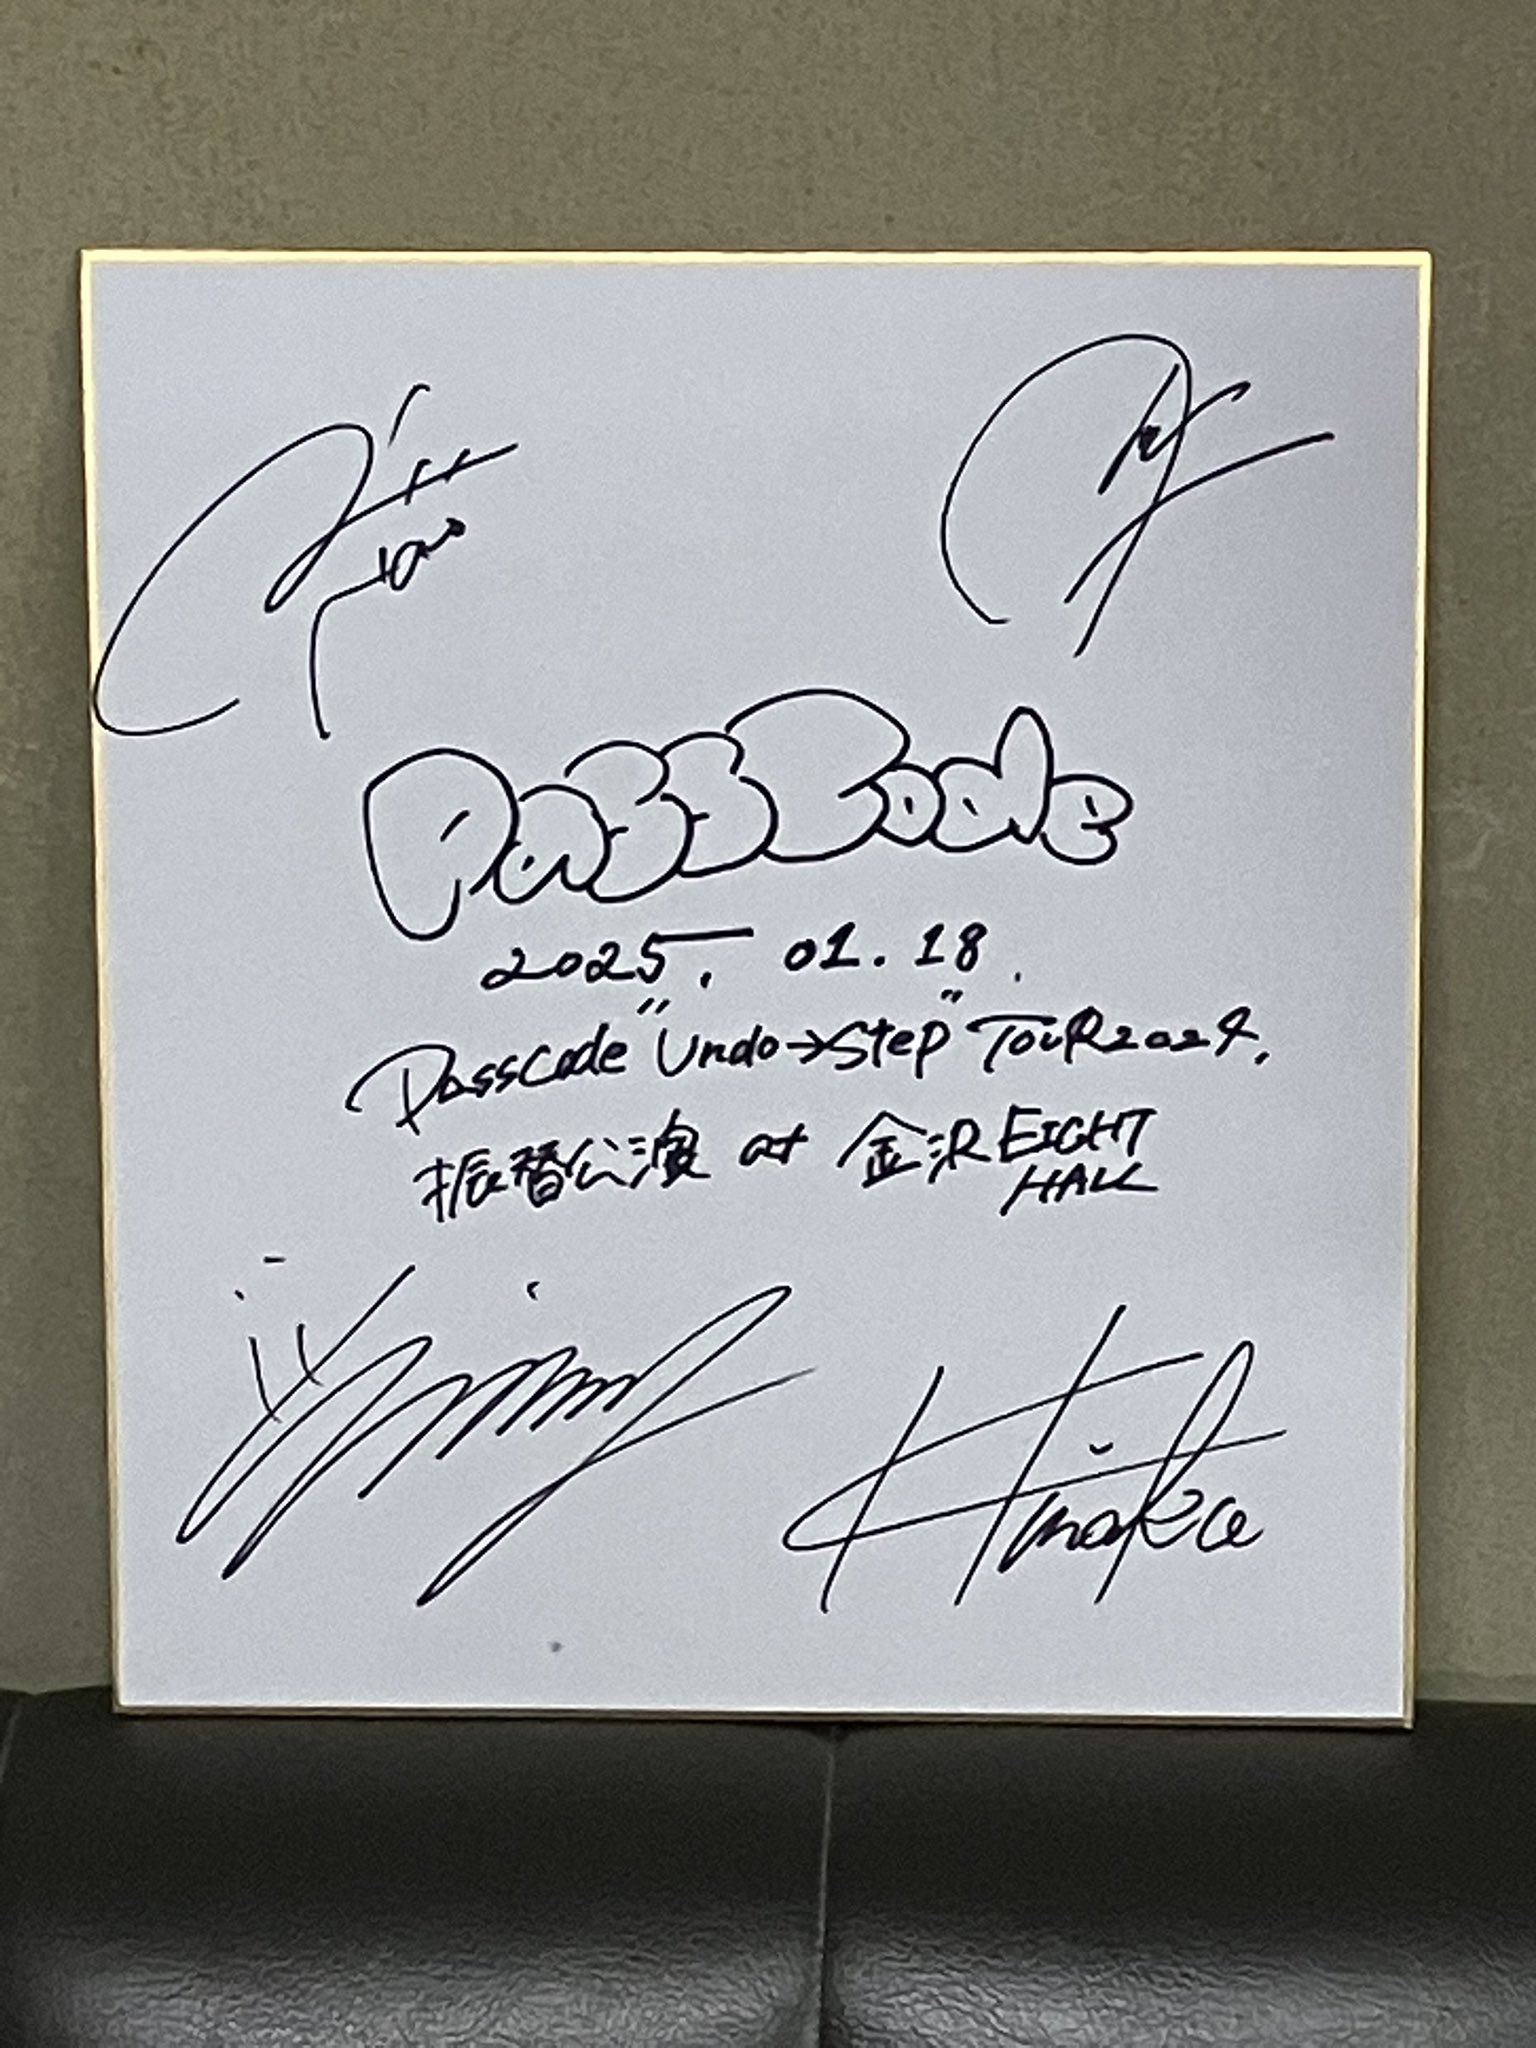 PassCode
2025. 01. 18.
PassCode "Undo→Step" TouR2024.
振替公演 at 金沢 EIGHT
HALL
Hinako